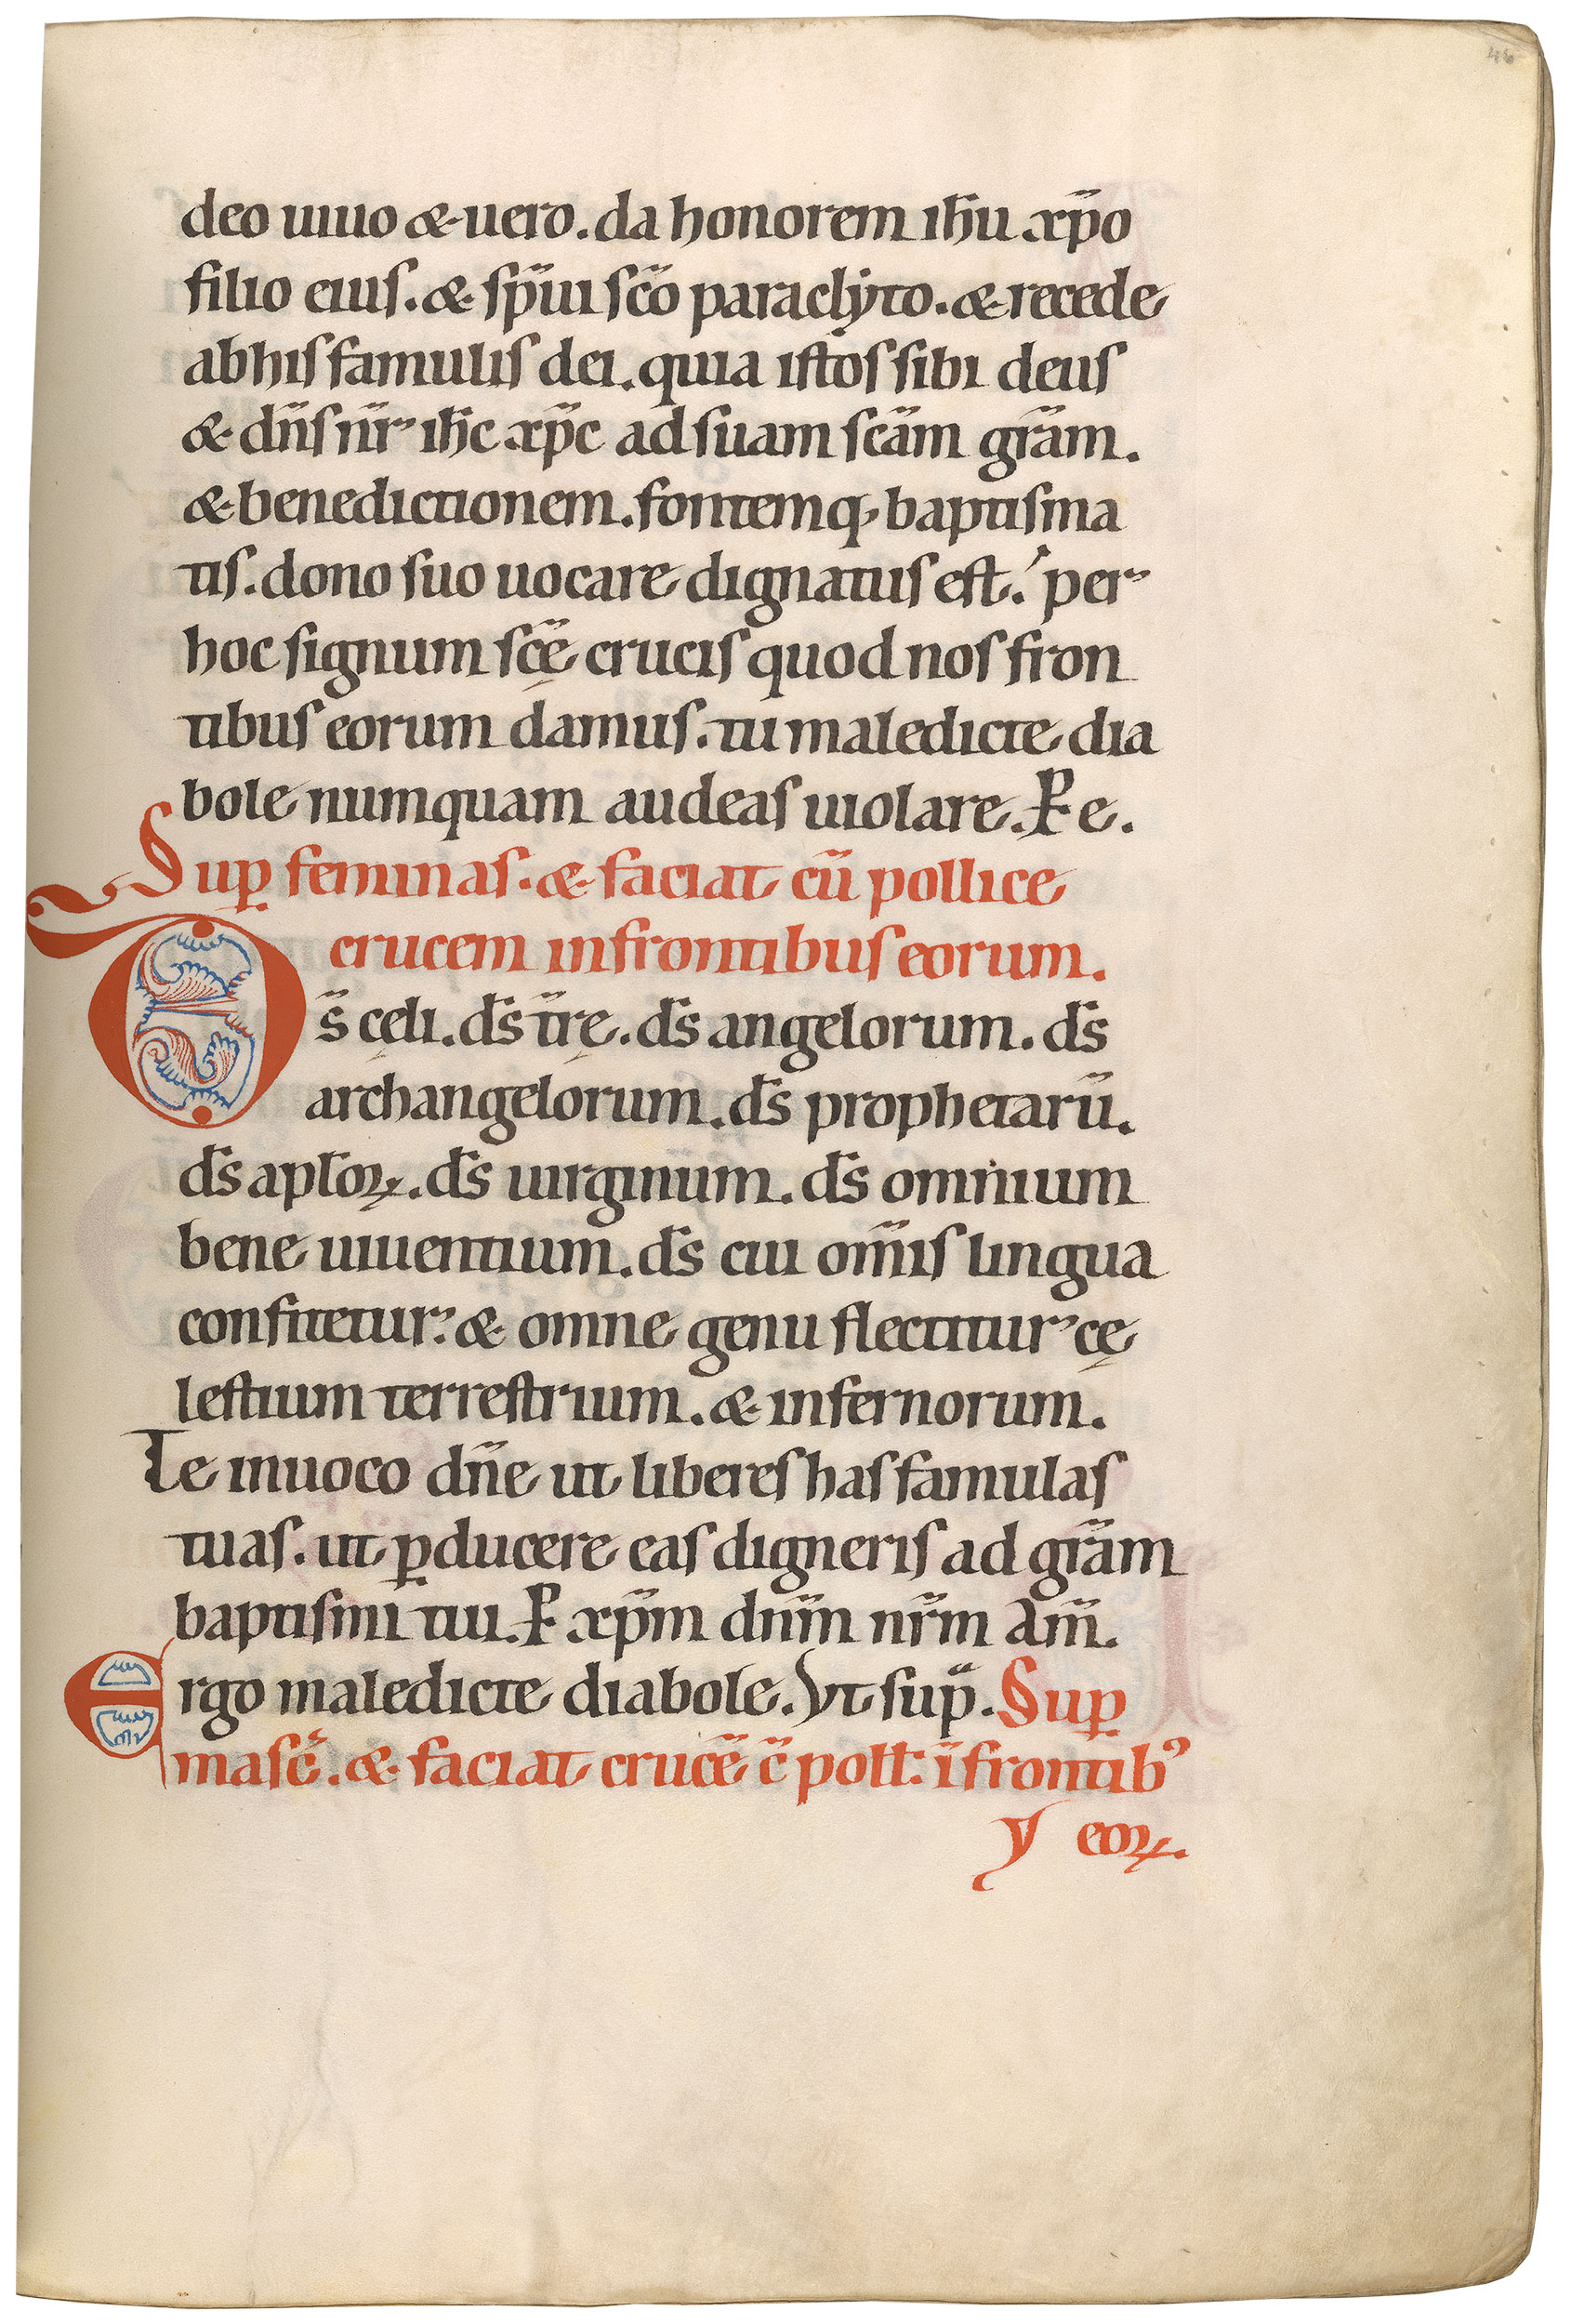 deo uiuo & uero. da honorem ih̅u xp̅o
filio eius. & sp̅ui sc̅o paraclẏto. & recede
ab his famulis dei. quia istos sibi deus
& dn̅s nr̅ ih̅c xp̅c ad suam sc̅am gr̅am.
& benedictionem. fontemq, baptisma
tis. dono suo uocare dignatus est.' per
hoc signum sc̅ę crucis quod nos fron
tibus eorum damus. tu maledicte dia
bole numquam audeas uiolare. P̶ e.
Sup̱ feminas. & faciat cu̅ pollice
crucem in frontibus eorum.
Ds̅ cęli. ds̅ tr̅ę. ds̅ angelorum. ds̅
archangelorum. ds̅ prophetaru̅.
ds̅ apl̅oꝝ. ds̅ uirginum. ds̅ omnium
bene uiuentium. ds̅ cui om̅is lingua
confitetur. & omne genu flectitur cę
lestium terrestrium. & infernorum.
Te inuoco dn̅e ut liberes has famulas
tuas. ut ꝑducere eas digneris ad gr̅am
baptismi tui. P̶ xp̅m dnm̅ nr̅m Am̅.
Ergo maledicte diabole. Vt sup̅. Sup̱
masc̅. & faciat cruce̅ c̅ poll̅: i̅ frontibꝰ
y eoꝝ.